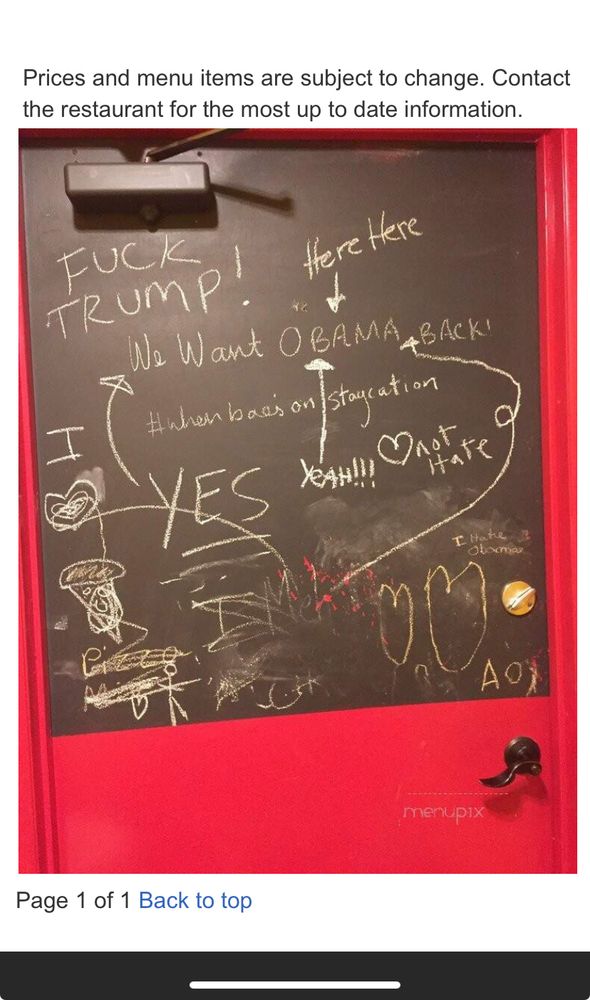 Prices and menu items are subject to change. Contact
the restaurant for the most up to date information.
FUCK
TRUMP!
Here Here
We Want OBAMA BACK!
#when bae's on staycation
I
not
Hate
YEAH!!!
YES
I Hate
I
AO
menupix
Page 1 of 1 Back to top